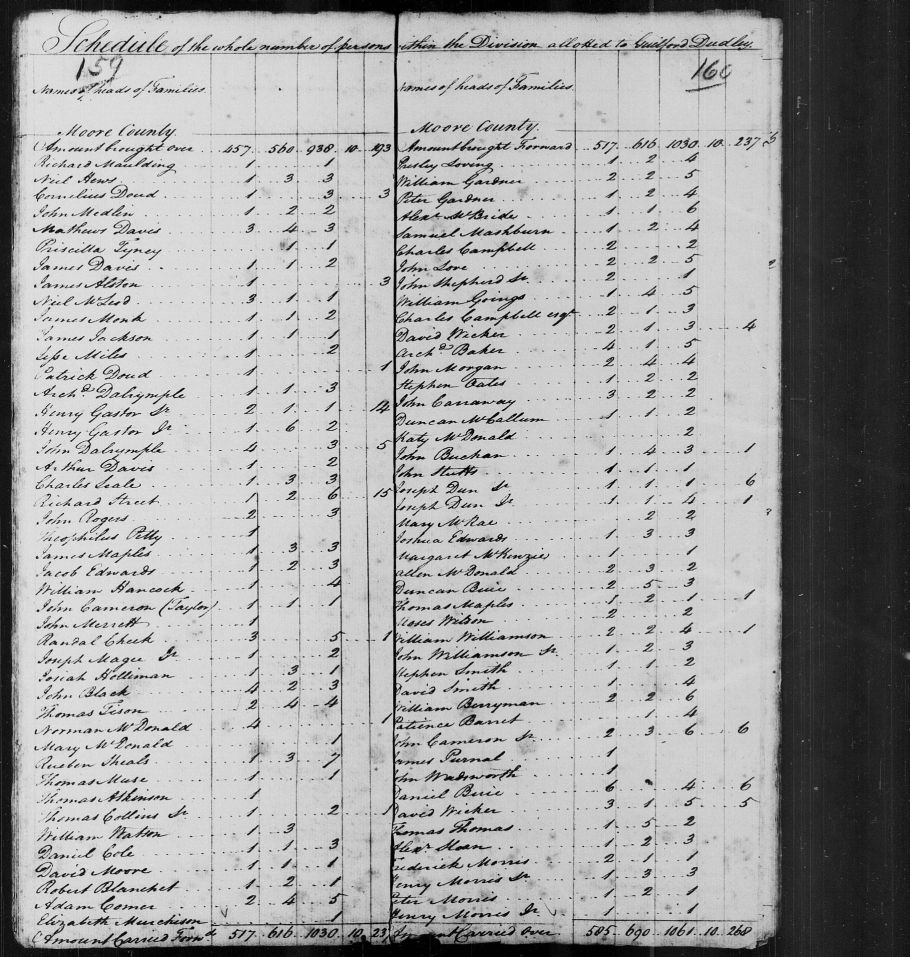 Schedule of the whole number of persons within the Division allotted to Guilford Dudley
159
Names of heads of Families
Moore County
Amount brought over 457 560 938 10 193
Richard Maulding 1 1
Niel Hews 1 3 3
Cornelius Doud 1 3 3
John Medlin 1 2 2
Mathews Davis 3 4 3
Priscilla Tyney 1 1
James Davis 1 1 2
James Alston 1 3
Niel McLeod 3 1 1
James Monk 1 1 2
James Jackson 1 1 1
Jesse Miles 1 2
Patrick Doud 1 1
Archd Dalrymple 1 1 3
Henry Gastor Sr 2 1 1 14
Henry Gastor Jr 1 6 2
John Dalrymple 4 3 5
Arthur Davis 1 2
Charles Seale 1 3 3
Richard Street 1 2 6 15
John Rogers 2 3
Theophilus Petty 1
James Maples 1 3 3
Jacob Edwards 1 2 3
William Hancock 1 4
John Cameron (Taylor) 1 1 1
John Merrett 1
Randal Cheek 3 5 1
Joseph Magee Jr 1 2
Josiah Holliman 1 3 1
John Black 4 2 3
Thomas Tison 2 4 4
Norman McDonald 4 1
Mary McDonald 1
Rueben Sheals 1 3 7
Thomas Muse 1 1
Thomas Atkinson 1
Thomas Collins Sr 1 2 1
William Watson 1 3
Daniel Cole 1 1 3
David Moore 1 1 1
Robert Blanchet 1 2 1
Adam Comer 2 4 5
Elizabeth Murchison 1
Amount Carried Forwd 517 616 1030 10 23
160
Names of heads of Families
Moore County
Amount brought Forward 517 616 1030 10 237
Presley Loving 1 2 4
William Gardner 2 2 5
Peter Gardner 1 2 4
Alexr McBride 1 1 6
Samuel Mashburn 1 2 4
Charles Campbell 2 2
John Love 2 2 5
John Shepherd Sr 2 1
William Goings 1 4 5
Charles Campbell esqr 2 1 3
David Wicker 2 1 3 4
Archd Baker 4 1 5
John Morgan 2 4 4
Stephen Oates 1 2 2
John Carraway 3 2 2
Duncan McCallum 1 1 2
Katy McDonald 2
John Buchan 1 4 3 1
John Stutts 1 1 1
Joseph Dun Sr 1 1 1 6
Joseph Dun Jr 1 1 4 1
Mary McRae 2 2
Joshua Edwards 1 3 3
Margaret McKenzie 1 1
Allen McDonald 2 3 2
Duncan Buie 2 5 3
Thomas Maples 1 2 1 1
Moses Wilson 2 2
William Williamson 2 2 4 1
John Williamson Sr 1 2 3
Stephen Smith 1 1 2
David Smith 1 4
William Berryman 2 2 6
Patience Barret 1 4
John Cameron Sr 2 3 6 6
James Purnal 1
John Wadsworth 1
Daniel Buie 6 4 6
David Wicker 3 1 5 5
Thomas Thomas 1 5 2
Alexr Sloan 1 2 3
Frederick Morris 2 1 1
Henry Morris Sr 1 3 3
Peter Morris 1 2 1
Henry Morris Jr 1 1
Amount Carried over 585 690 1061 10 268